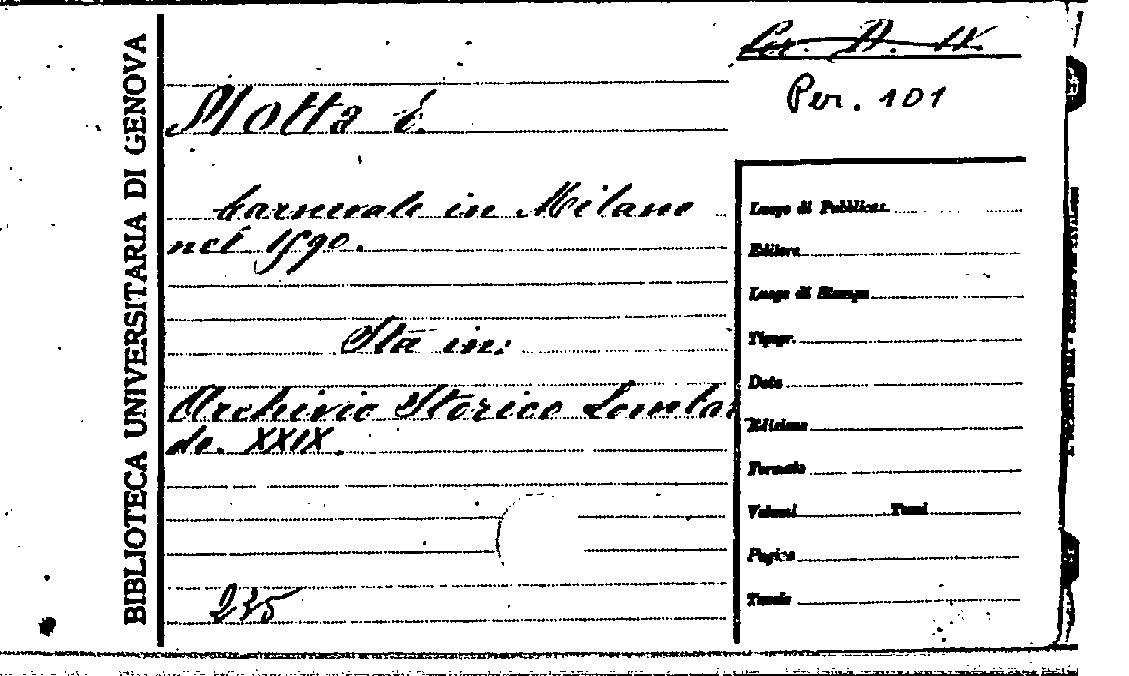 BIBLIOTECA UNIVERSITARIA DI GENOVA
Per. A. IX
Per. 101
Motta E.
Carnevale in Milano
nel 1590.
Sta in:
Archivio Storico Lombar
do. XXIX.
235
Luogo di Pubblicaz.
Editore
Luogo di Stampa
Tipogr.
Data
Edizione
Formato
Volumi Tomi
Pagine
Tavole